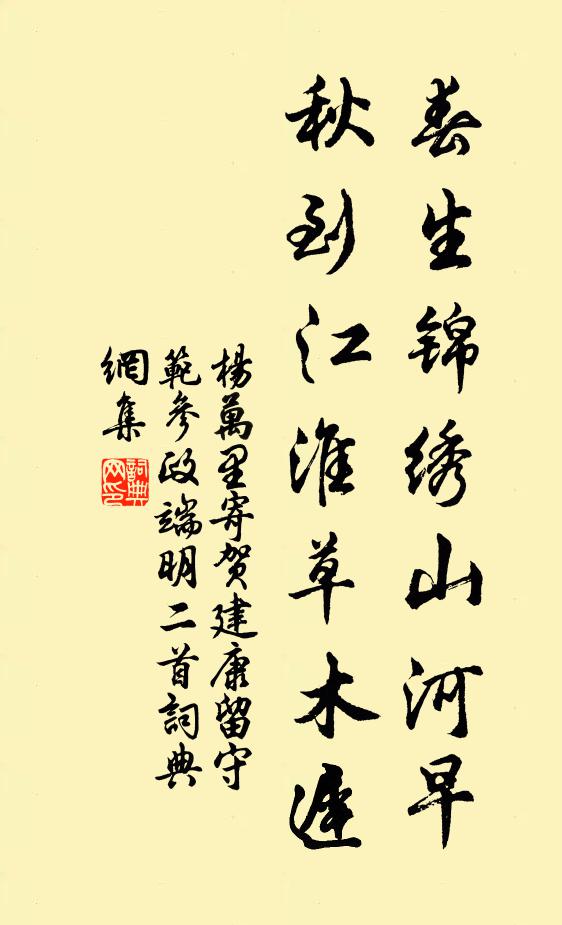 春生锦绣山河早
秋到江淮草木遲
楊萬里寄贺建康留守
範參政端明二首詞典
網集
詞典网印